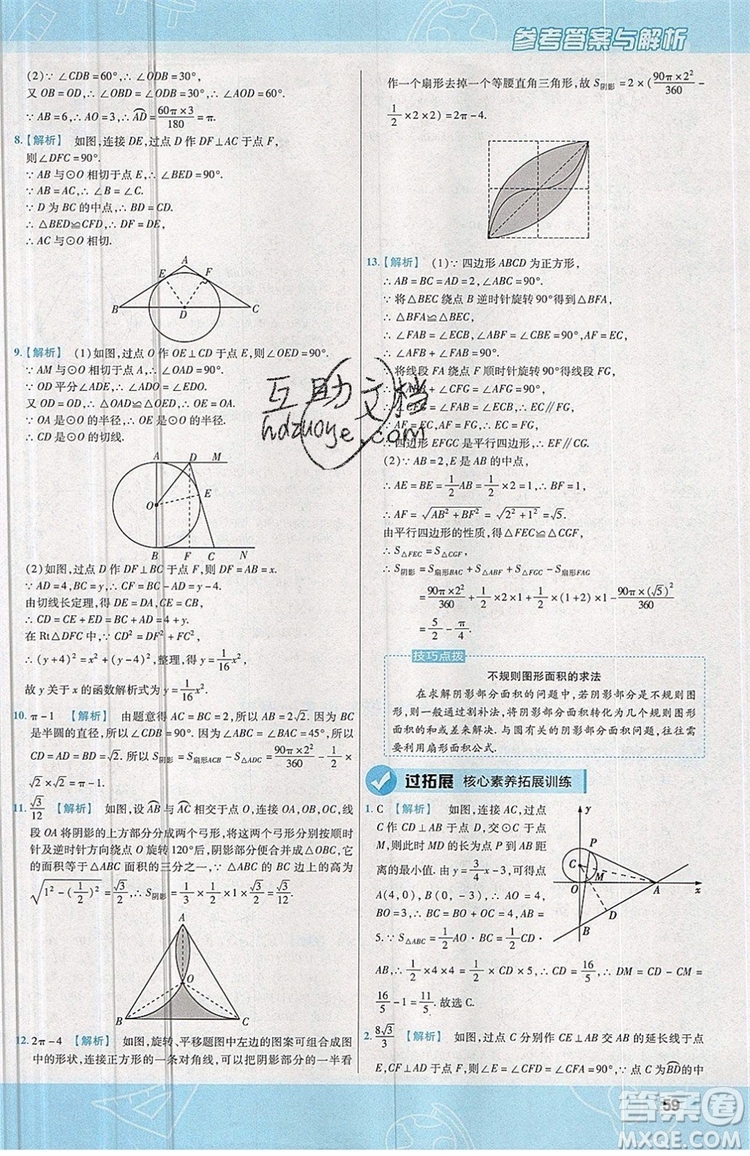 参考答案与解析
(2)∵ ∠CDB=60°,∴ ∠COD=60°.
又 OB=OD,∴ ∠OBD=∠ODB=60°.
∵ AB=6,∴ AO=3,∴ AD=60π×3/180=π.
8.【解析】 如图,连接 DE,过点 D 作 DF⊥AC 于点 F,
则∠DFC=90°.
∵ AB 与⊙O 相切于点 E,∴ ∠DEB=90°.
∵ AB=AC,∴ ∠B=∠C.
∵ D 为 BC 的中点,∴ DB=DC,
∴ △BED≌△CFD,∴ DF=DE,
∴ AC 与⊙D 相切.
A
E
F
B
D
C
9.【解析】 (1)如图,过点 O 作 OE⊥CD 于点 E,则∠OED=90°.
∵ AM 与⊙O 相切于点 A,∴ ∠OAD=90°.
∵ OD 平分∠ADE,∴ ∠ADO=∠EDO.
又 OD=OD,∴ △OAD≌△OED,∴ OE=OA.
∵ OA 是⊙O 的半径,∴ OE 是⊙O 的半径,
∴ CD 是⊙O 的切线.
A
D
M
E
O
B
F
C
N
(2)如图,过点 D 作 DF⊥BC 于点 F,则 DF=AB=x.
∵ AD=4,BC=y,∴ CF=BC-AD=y-4.
由切线长定理,得 DE=DA,CE=CB,
∴ CD=CE+ED=BC+AD=4+y.
在 Rt△DFC 中,∵ CD²=DF²+FC²,
∴ (y+4)²=x²+(y-4)²,整理,得 y=1/16x²,
故 y 关于 x 的函数解析式为 y=1/16x².
10. π-1 【解析】 由题意得 AC=BC=2,∴ AB=2√2. ∵ BC
是半圆的直径,∴ ∠CDB=90°. ∵ ∠ABC=∠BAC=45°,
∴ CD=AD=BD=√2,∴ S阴影=S扇形CAB-S△ADC=90π×2²/360-
1/2×√2×√2=π-1.
11. √3/12 【解析】 如图,设 AB 与 AC 相交于点 O,连接 OA,OB,OC,线
段 OA 将阴影的上方部分分成两个弓形,将这两个弓形分别按顺时
针及逆时针方向绕点 O 旋转 120°后,阴影部分便合并成△OBC,
它的面积等于△ABC 面积的三分之一,∵ △ABC 中 BC 边上的高为
√(1²-(1/2)²)=√3/2,∴ S△ABC=1/2×1×√3/2,∴ S阴影=1/3×1/2×1×√3/2=√3/12.
A
O
B
C
12. 2π-4 【解析】 如图,旋转、平移题图中左边的图案可组合成图
中的形状,连接正方形的一条对角线,可以把阴影部分的一半看
作一个扇形去掉一个等腰直角三角形,故 S阴影=2×(90π×2²/360-
1/2×2×2)=2π-4.
13.【解析】 (1)∵ 四边形 ABCD 为正方形,
∴ AB=BC=AD=2,∠ABC=90°.
∵ 将△BEC 绕点 B 逆时针旋转 90°得到△BFA,
∴ △ABF≌△CBE,
∴ ∠FAB=∠ECB,∠ABF=∠CBE=90°,AF=EC,
∴ ∠AFB+∠FAB=90°.
∵ 将线段 FA 绕点 F 顺时针旋转 90°得线段 FG,
∴ ∠AFB+∠CFG=∠AFG=90°,
∴ ∠CFG=∠FAB=∠ECB,∴ EC∥FG,
∵ AF=EC,AF=FG,∴ EC=FG,
∴ 四边形 EFGC 是平行四边形,∴ EF∥CG.
(2)∵ AB=2,E 是 AB 的中点,
∴ AE=BE=1/2AB=1/2×2=1,
∴ AF=√(AB²+BF²)=√(2²+1²)=√5.
由平行四边形的性质,得△CFE≌△FCG,
∴ S△FEC=S△CGF,
∴ S阴影=S扇形BAC+S△ABF+S△FGC-S扇形FAG
=90π×2²/360+1/2×2×1+1/2×(1+2)×1-90π×(√5)²/360
=5/2-π/4.
技巧点拨
不规则图形面积的求法
在求解阴影部分面积的问题中,若阴影部分为不规则图形,
则一般通过割补法,将阴影部分面积转化为几个规则图形的面
积的和或差来解决. 与圆有关的阴影部分面积的求解问题,通常
要利用扇形面积公式.
过拓展 核心素养拓展训练
1. C 【解析】 如图,过点 C 作
CD⊥AB 于点 D,交⊙C 于点
M,连接 AC,MA,MB,则由题
意得 DM 的长是点 P 到 AB 距
离的最小值. 由 y=3/4x-3,可得
A(4,0),B(0,-3),∴ AO=4,
BO=3,∴ BC=4,AB=
5. ∵ S△ABC=1/2BC·AO=1/2AB·CD,
∴ 1/2×4×4=1/2×5·CD,∴ CD=16/5,∴ DM=
16/5-1=11/5. 故选 C.
y
P
C
M
O
A
x
D
B
2. 8√3/3 【解析】 如图,过点 C 分别作 CE⊥AB 交 AB 的延长线于点
E,CF⊥AD 于点 F,则∠E=∠CFD=∠CFA=90°. ∵ 点 C 为BD的中
59
互助文档
hdzuoye.com
答案圈
MXQE.COM